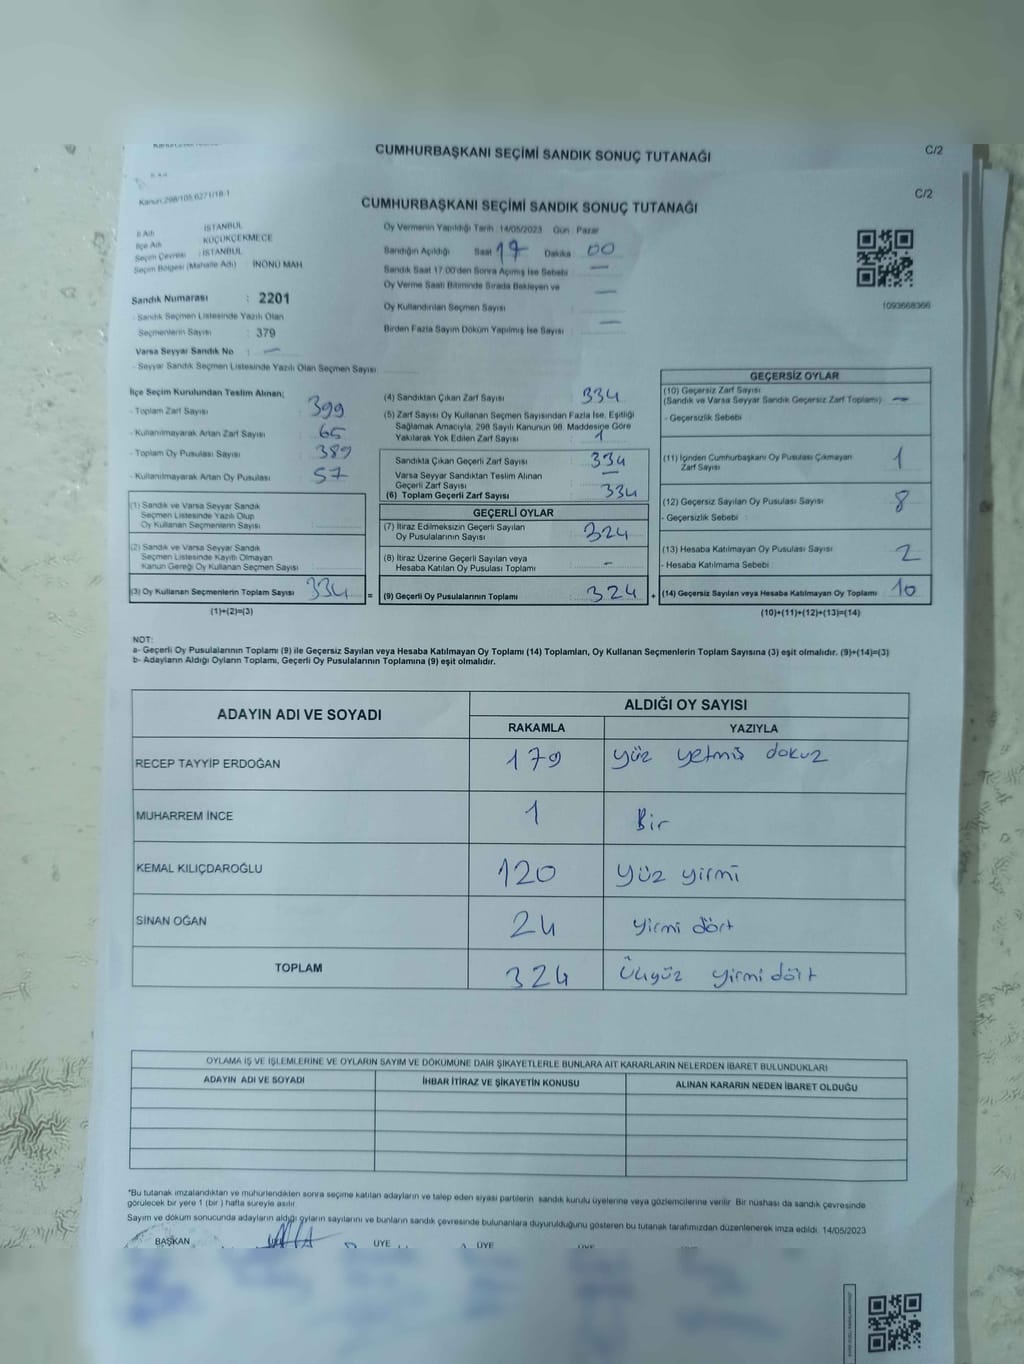 CUMHURBAŞKANI SEÇİMİ SANDIK SONUÇ TUTANAĞI
C/2
Kanun:298/105,6271/18-1
CUMHURBAŞKANI SEÇİMİ SANDIK SONUÇ TUTANAĞI
C/2
İl Adı : İSTANBUL
İlçe Adı KÜÇÜKÇEKMECE
Seçim Çevresi : İSTANBUL
Seçim Bölgesi (Mahalle Adı) : İNÖNÜ MAH
Sandık Numarası : 2201
- Sandık Seçmen Listesinde Yazılı Olan
Seçmenlerin Sayısı : 379
Varsa Seyyar Sandık No : —
- Seyyar Sandık Seçmen Listesinde Yazılı Olan Seçmen Sayısı
Oy Vermenin Yapıldığı Tarih : 14/05/2023 Gün : Pazar
Sandığın Açıldığı Saat 17 Dakika 00
Sandık Saat 17.00'den Sonra Açımış İse Sebebi : —
Oy Verme Saati Bitiminde Sırada Bekleyen ve —
Oy Kullandırılan Seçmen Sayısı
Birden Fazla Sayım Döküm Yapılmış İse Sayısı : —
1093668366
İlçe Seçim Kurulundan Teslim Alınan;
- Toplam Zarf Sayısı 399
- Kullanılmayarak Artan Zarf Sayısı : 65
- Toplam Oy Pusulası Sayısı : 389
- Kullanılmayarak Artan Oy Pusulası : 57
(1) Sandık ve Varsa Seyyar Sandık
Seçmen Listesinde Yazılı Olup
Oy Kullanan Seçmenlerin Sayısı
(2) Sandık ve Varsa Seyyar Sandık
Seçmen Listesinde Kayıtlı Olmayan
Kanun Gereği Oy Kullanan Seçmen Sayısı
(3) Oy Kullanan Seçmenlerin Toplam Sayısı 334
(1)+(2)=(3)
=
(4) Sandıktan Çıkan Zarf Sayısı : 334
(5) Zarf Sayısı Oy Kullanan Seçmen Sayısından Fazla İse, Eşitliği
Sağlamak Amacıyla, 298 Sayılı Kanunun 98. Maddesine Göre
Yakılarak Yok Edilen Zarf Sayısı : 1
Sandıkta Çıkan Geçerli Zarf Sayısı : 334
Varsa Seyyar Sandıktan Teslim Alınan
Geçerli Zarf Sayısı : —
(6) Toplam Geçerli Zarf Sayısı 334
GEÇERLİ OYLAR
(7) İtiraz Edilmeksizin Geçerli Sayılan
Oy Pusulalarının Sayısı 324
(8) İtiraz Üzerine Geçerli Sayılan veya
Hesaba Katılan Oy Pusulası Toplamı -
(9) Geçerli Oy Pusulalarının Toplamı 324
+
GEÇERSİZ OYLAR
(10) Geçersiz Zarf Sayısı
(Sandık ve Varsa Seyyar Sandık Geçersiz Zarf Toplamı) : —
- Geçersizlik Sebebi :
(11) İçinden Cumhurbaşkanı Oy Pusulası Çıkmayan
Zarf Sayısı 1
(12) Geçersiz Sayılan Oy Pusulası Sayısı 8
- Geçersizlik Sebebi :
(13) Hesaba Katılmayan Oy Pusulası Sayısı : 2
- Hesaba Katılmama Sebebi :
(14) Geçersiz Sayılan veya Hesaba Katılmayan Oy Toplamı 10
(10)+(11)+(12)+(13)=(14)
NOT:
a- Geçerli Oy Pusulalarının Toplamı (9) ile Geçersiz Sayılan veya Hesaba Katılmayan Oy Toplamı (14) Toplamları, Oy Kullanan Seçmenlerin Toplam Sayısına (3) eşit olmalıdır. (9)+(14)=(3)
b- Adayların Aldığı Oyların Toplamı, Geçerli Oy Pusulalarının Toplamına (9) eşit olmalıdır.
ADAYIN ADI VE SOYADI
ALDIĞI OY SAYISI
RAKAMLA YAZIYLA
RECEP TAYYİP ERDOĞAN 179 yüz yetmiş dokuz
MUHARREM İNCE 1 Bir
KEMAL KILIÇDAROĞLU 120 yüz yirmi
SİNAN OĞAN 24 yirmi dört
TOPLAM 324 Üçyüz yirmi dört
OYLAMA İŞ VE İŞLEMLERİNE VE OYLARIN SAYIM VE DÖKÜMÜNE DAİR ŞİKAYETLERLE BUNLARA AİT KARARLARIN NELERDEN İBARET BULUNDUKLARI
ADAYIN ADI VE SOYADI İHBAR İTİRAZ VE ŞİKAYETİN KONUSU ALINAN KARARIN NEDEN İBARET OLDUĞU
*Bu tutanak imzalandıktan ve mühürlendikten sonra seçime katılan adayların ve talep eden siyasi partilerin sandık kurulu üyelerine veya gözlemcilerine verilir. Bir nüshası da sandık çevresinde
görülecek bir yere 1 (bir) hafta süreyle asılır.
Sayım ve döküm sonucunda adayların aldığı oyların sayılarını ve bunların sandık çevresinde bulunanlara duyurulduğunu gösteren bu tutanak tarafımızdan düzenlenerek imza edildi. 14/05/2023
BAŞKAN ÜYE ÜYE ÜYE